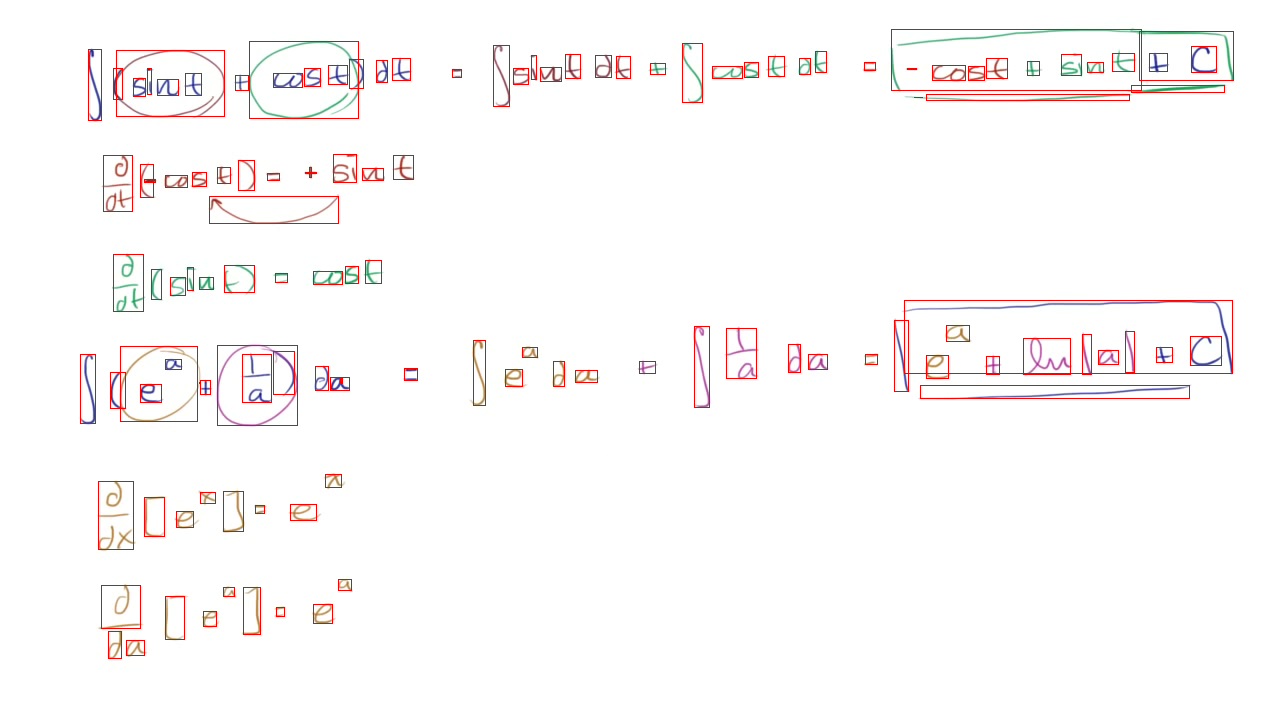 ∫ (sin t + cos t) dt = ∫ sin t dt + ∫ cos t dt = - cos t + sin t + C
d/dt (-cos t) = + sin t
d/dt (sin t) = cos t
∫ (e^a + 1/a) da = ∫ e^a da + ∫ 1/a da = e^a + ln |a| + C
d/dx [e^x] = e^x
d/da [e^a] = e^a